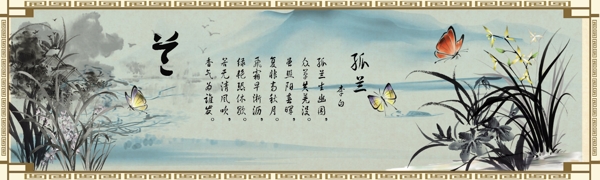 孤兰
李白
孤兰生幽园，
众草共芜没。
虽照阳春晖，
复悲高秋月。
飞霜早淅沥，
绿艳恐休歇。
若无清风吹，
香气为谁发。
兰